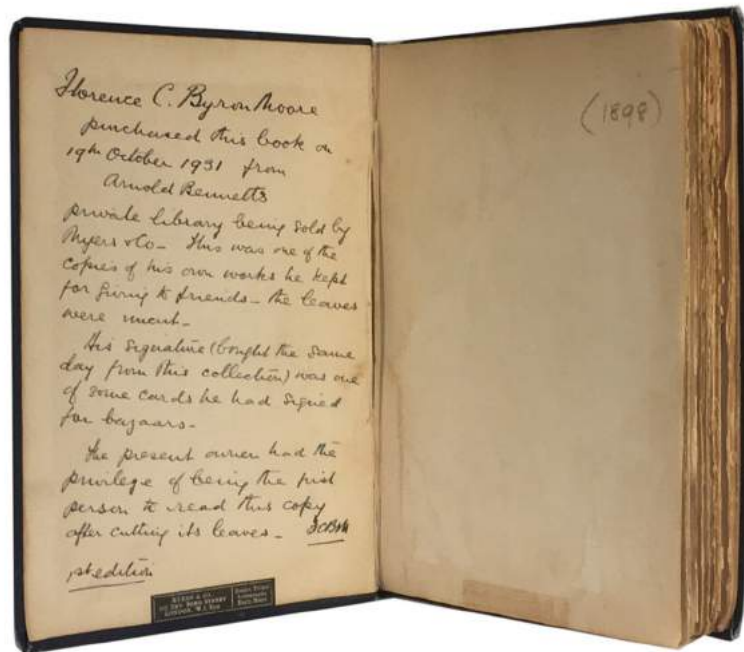 Florence C. Byron Moore
purchased this book on
19th October 1931 from
Arnold Bennetts
private library being sold by
Myers & Co - This was one of the
copies of his own works he kept
for giving to friends - the leaves
were uncut -
His signature (bought the same
day from this collection) was one
of some cards he had signed
for bazaars -
The present owner had the
privilege of being the first
person to read this copy
after cutting its leaves - FCBM
1st edition
MYERS & CO.
BOND STREET
LONDON, W.1
(1898)